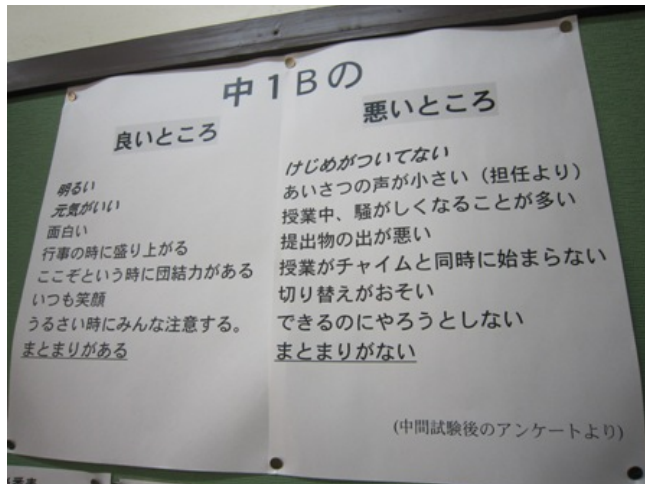 中１Ｂの
良いところ
明るい
元気がいい
面白い
行事の時に盛り上がる
ここぞという時に団結力がある
いつも笑顔
うるさい時にみんな注意する。
まとまりがある
悪いところ
けじめがついてない
あいさつの声が小さい（担任より）
授業中、騒がしくなることが多い
提出物の出が悪い
授業がチャイムと同時に始まらない
切り替えがおそい
できるのにやろうとしない
まとまりがない
(中間試験後のアンケートより)